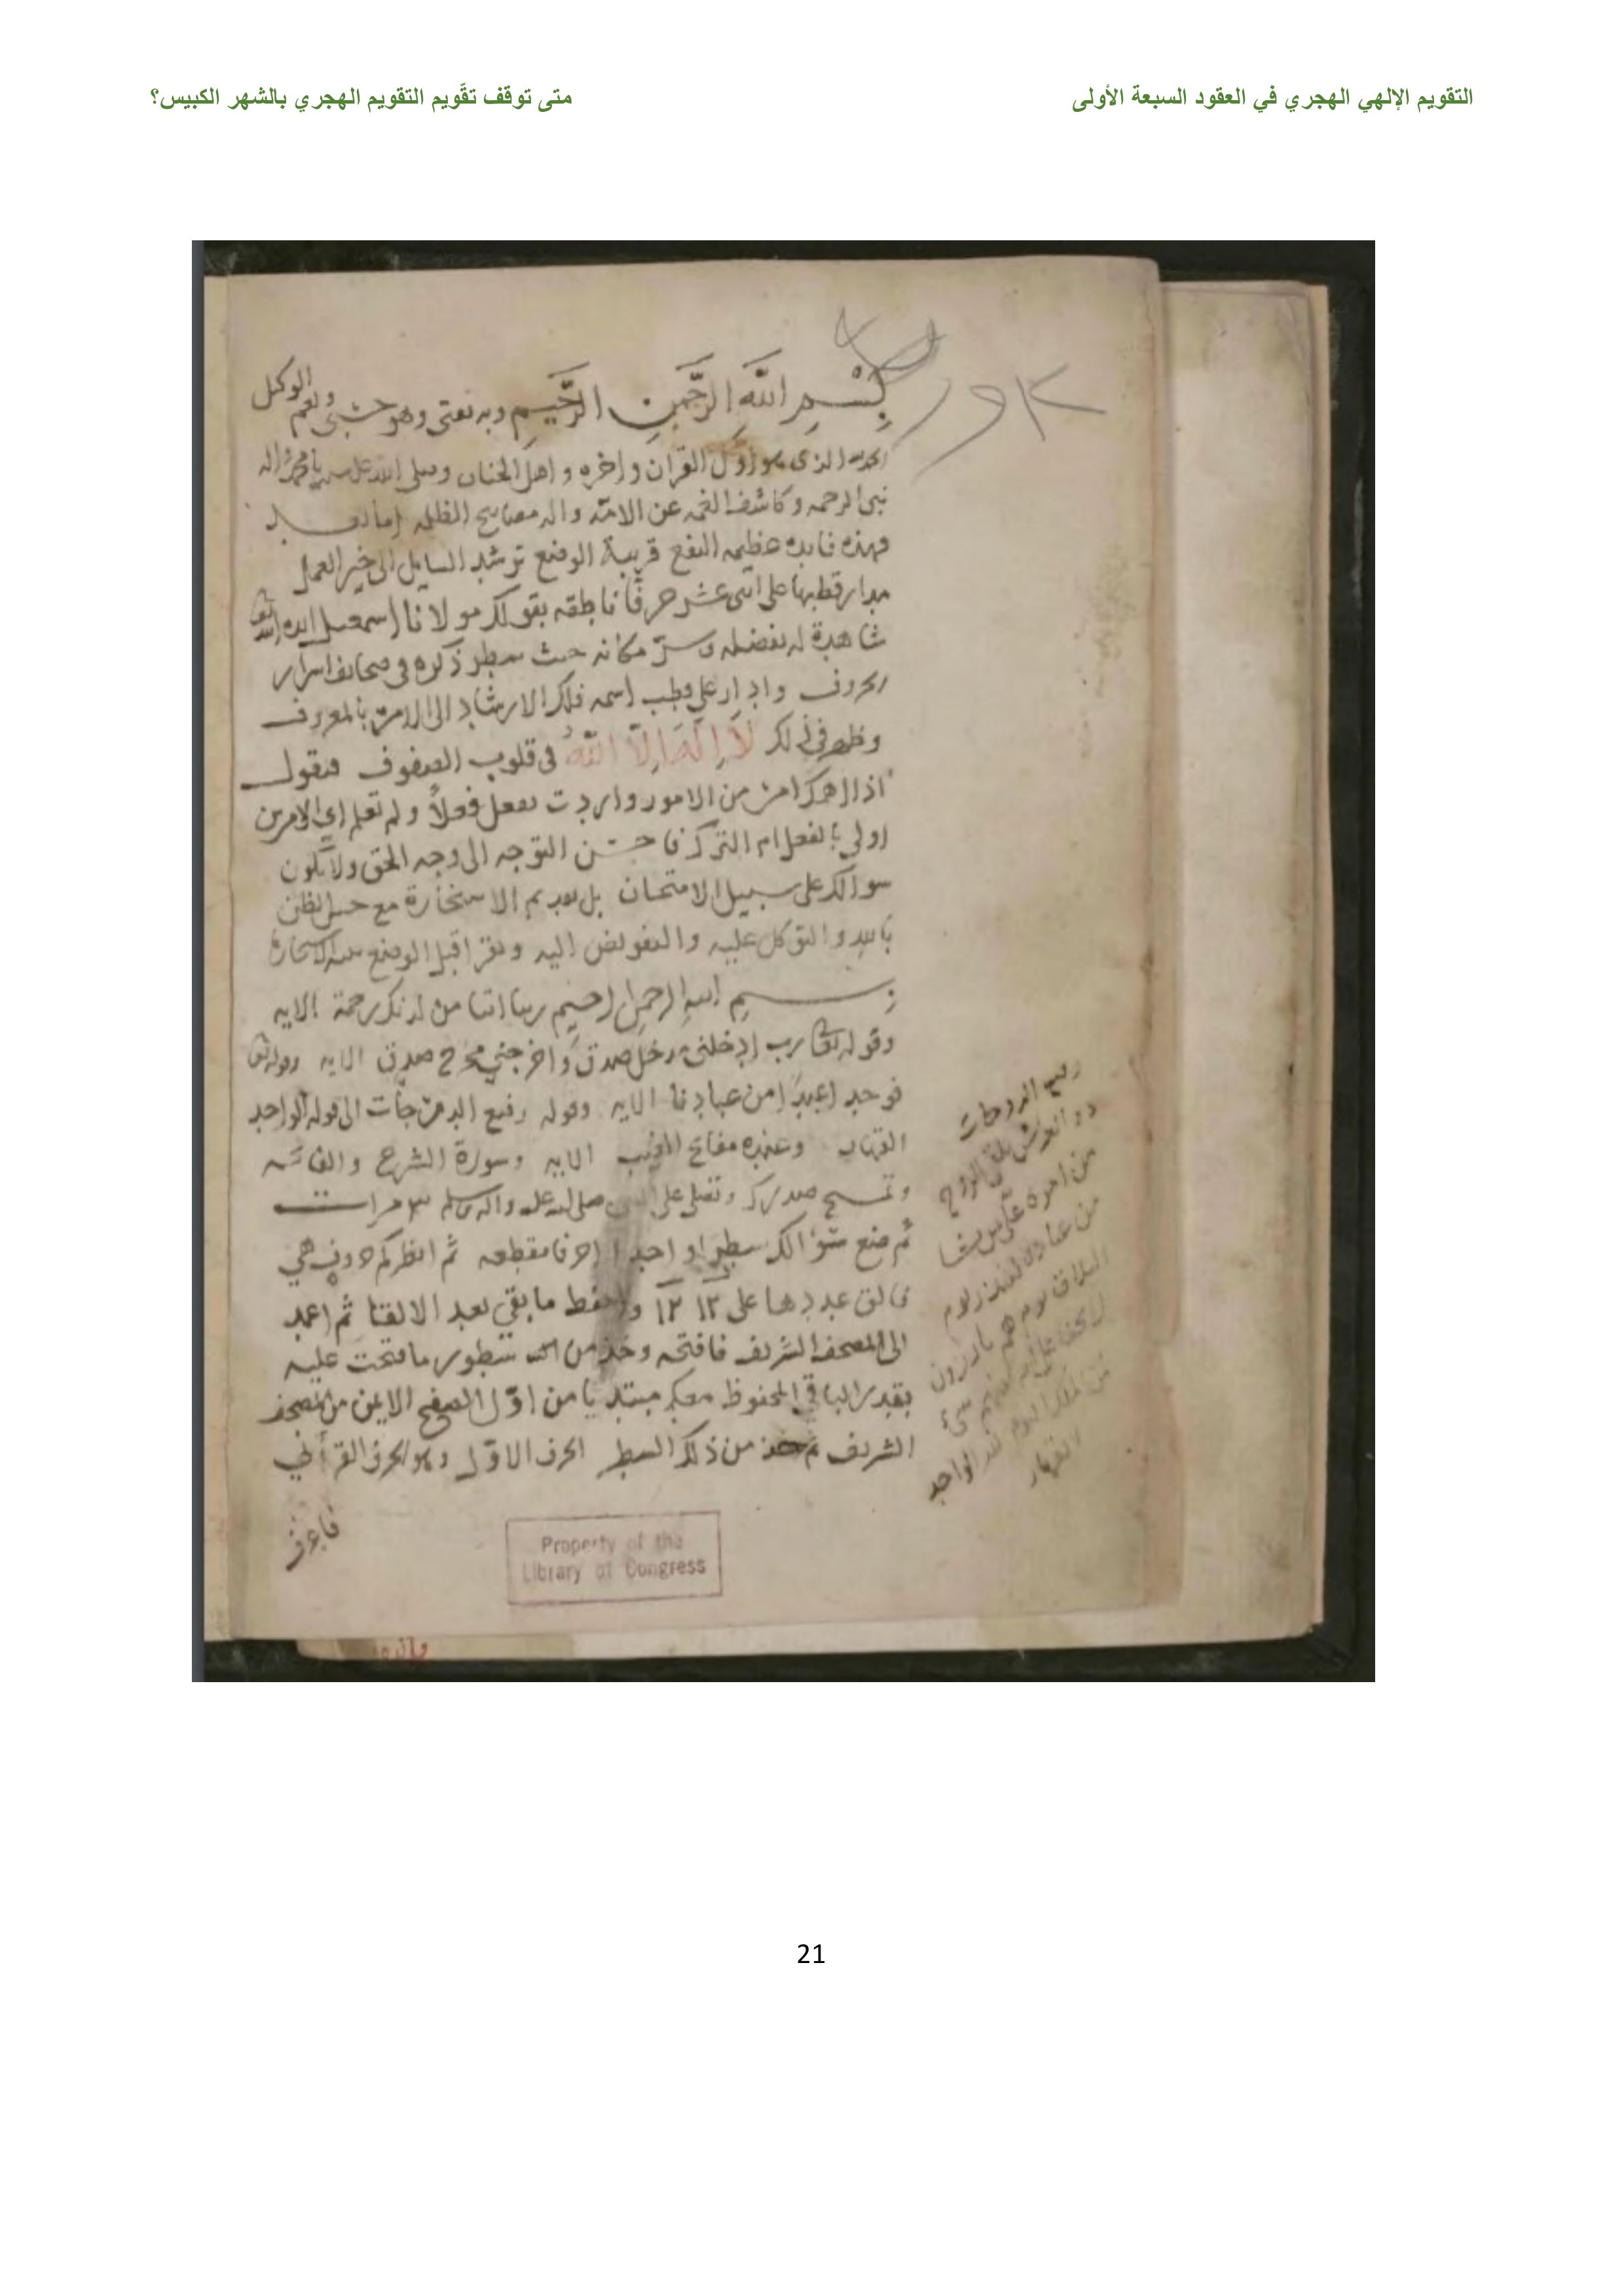 التقويم الإلهي الهجري في العقود السبعة الأولى
متى توقف تقّويم التقويم الهجري بالشهر الكبيس؟
بِسْمِ اللَّهِ الرَّحْمَنِ الرَّحِيمِ وبه ثقتي وهو حسبي ونعم الوكيل
الحمد لله الذي هو اول القران واخره و اهل الجنان وصلى الله على سيدنا محمد واله
نبي الرحمه وكاشف الغمه عن الامة واله مصابيح الظلمه اما بعد
فهذه فايده عظيمه النفع قريبة الوضع ترشد السايل الى خير العمل
مدار قطبها على اثنى عشر حرفًا ناطقه بقولك مولانا اسمعيل ايده الله
شاهدة له بفضله وسر مكانه حيث سطر ذكره في صحائف اسرار
الحروف وادار على قطب اسمه فلك الارشاد الى الامر بالمعروف
وظهر في ذلك لَا إِلَهَ إِلَّا اللهُ في قلوب الصفوف فنقول
اذا اهمك امر من الامور واردت تفعل فعلاً ولم تعلم اي الامرين
اولى بالفعل ام الترك فاحسن التوجه الى وجه الحق ولا يكون
سوالك على سبيل الامتحان بل بعد تقديم الاستخارة مع حسن الظن
بالله والتوكل عليه والتفويض اليه وتقرا قبل الوضع
بسم الله الرحمن الرحيم ربنا اتنا من لدنك رحمة الايه
وقوله تعالى رب ادخلني مدخل صدق واخرجني مخرج صدق الايه وقوله تعالى
فوجدا عبدًا من عبادنا الايه وقوله رفيع الدرجات الى قوله الواحد
القهار وعنده مفاتح الغيب الايه وسورة الشرح والفاتحه
وتمسح صدرك وتصلي على النبي صلى الله عليه واله وسلم ٣ مرات
ثم ضع سؤالك سطرا واحدا احرفا مقطعه ثم انظر كم حروف هي
فالق عددها على ١٢ ١٢ واحفظ ما بقي بعد الالقا ثم اعمد
الى المصحف الشريف فافتحه وخذ من سطور ما فتحت عليه
بقدر الباقي المحفوظ معك مبتديا من اوّل الصفح الايمن من المصحف
الشريف ثم خذ من ذلك السطر الحرف الاوّل وهو الحرف القرأني
فاعرف
رفيع الدرجات
ذو العرش يلقي الروح
من امره على من يشا
من عباده لينذر يوم
التلاق يوم هم بارزون
لا يخفى على الله منهم شيء
لمن الملك اليوم لله الواحد
القهار
Property of the
Library of Congress
21